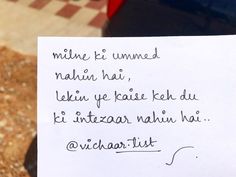 milne ki ummed
nahin hai,
lekin ye kaise keh du
ki intezaar nahin hai..
@vichaar.list